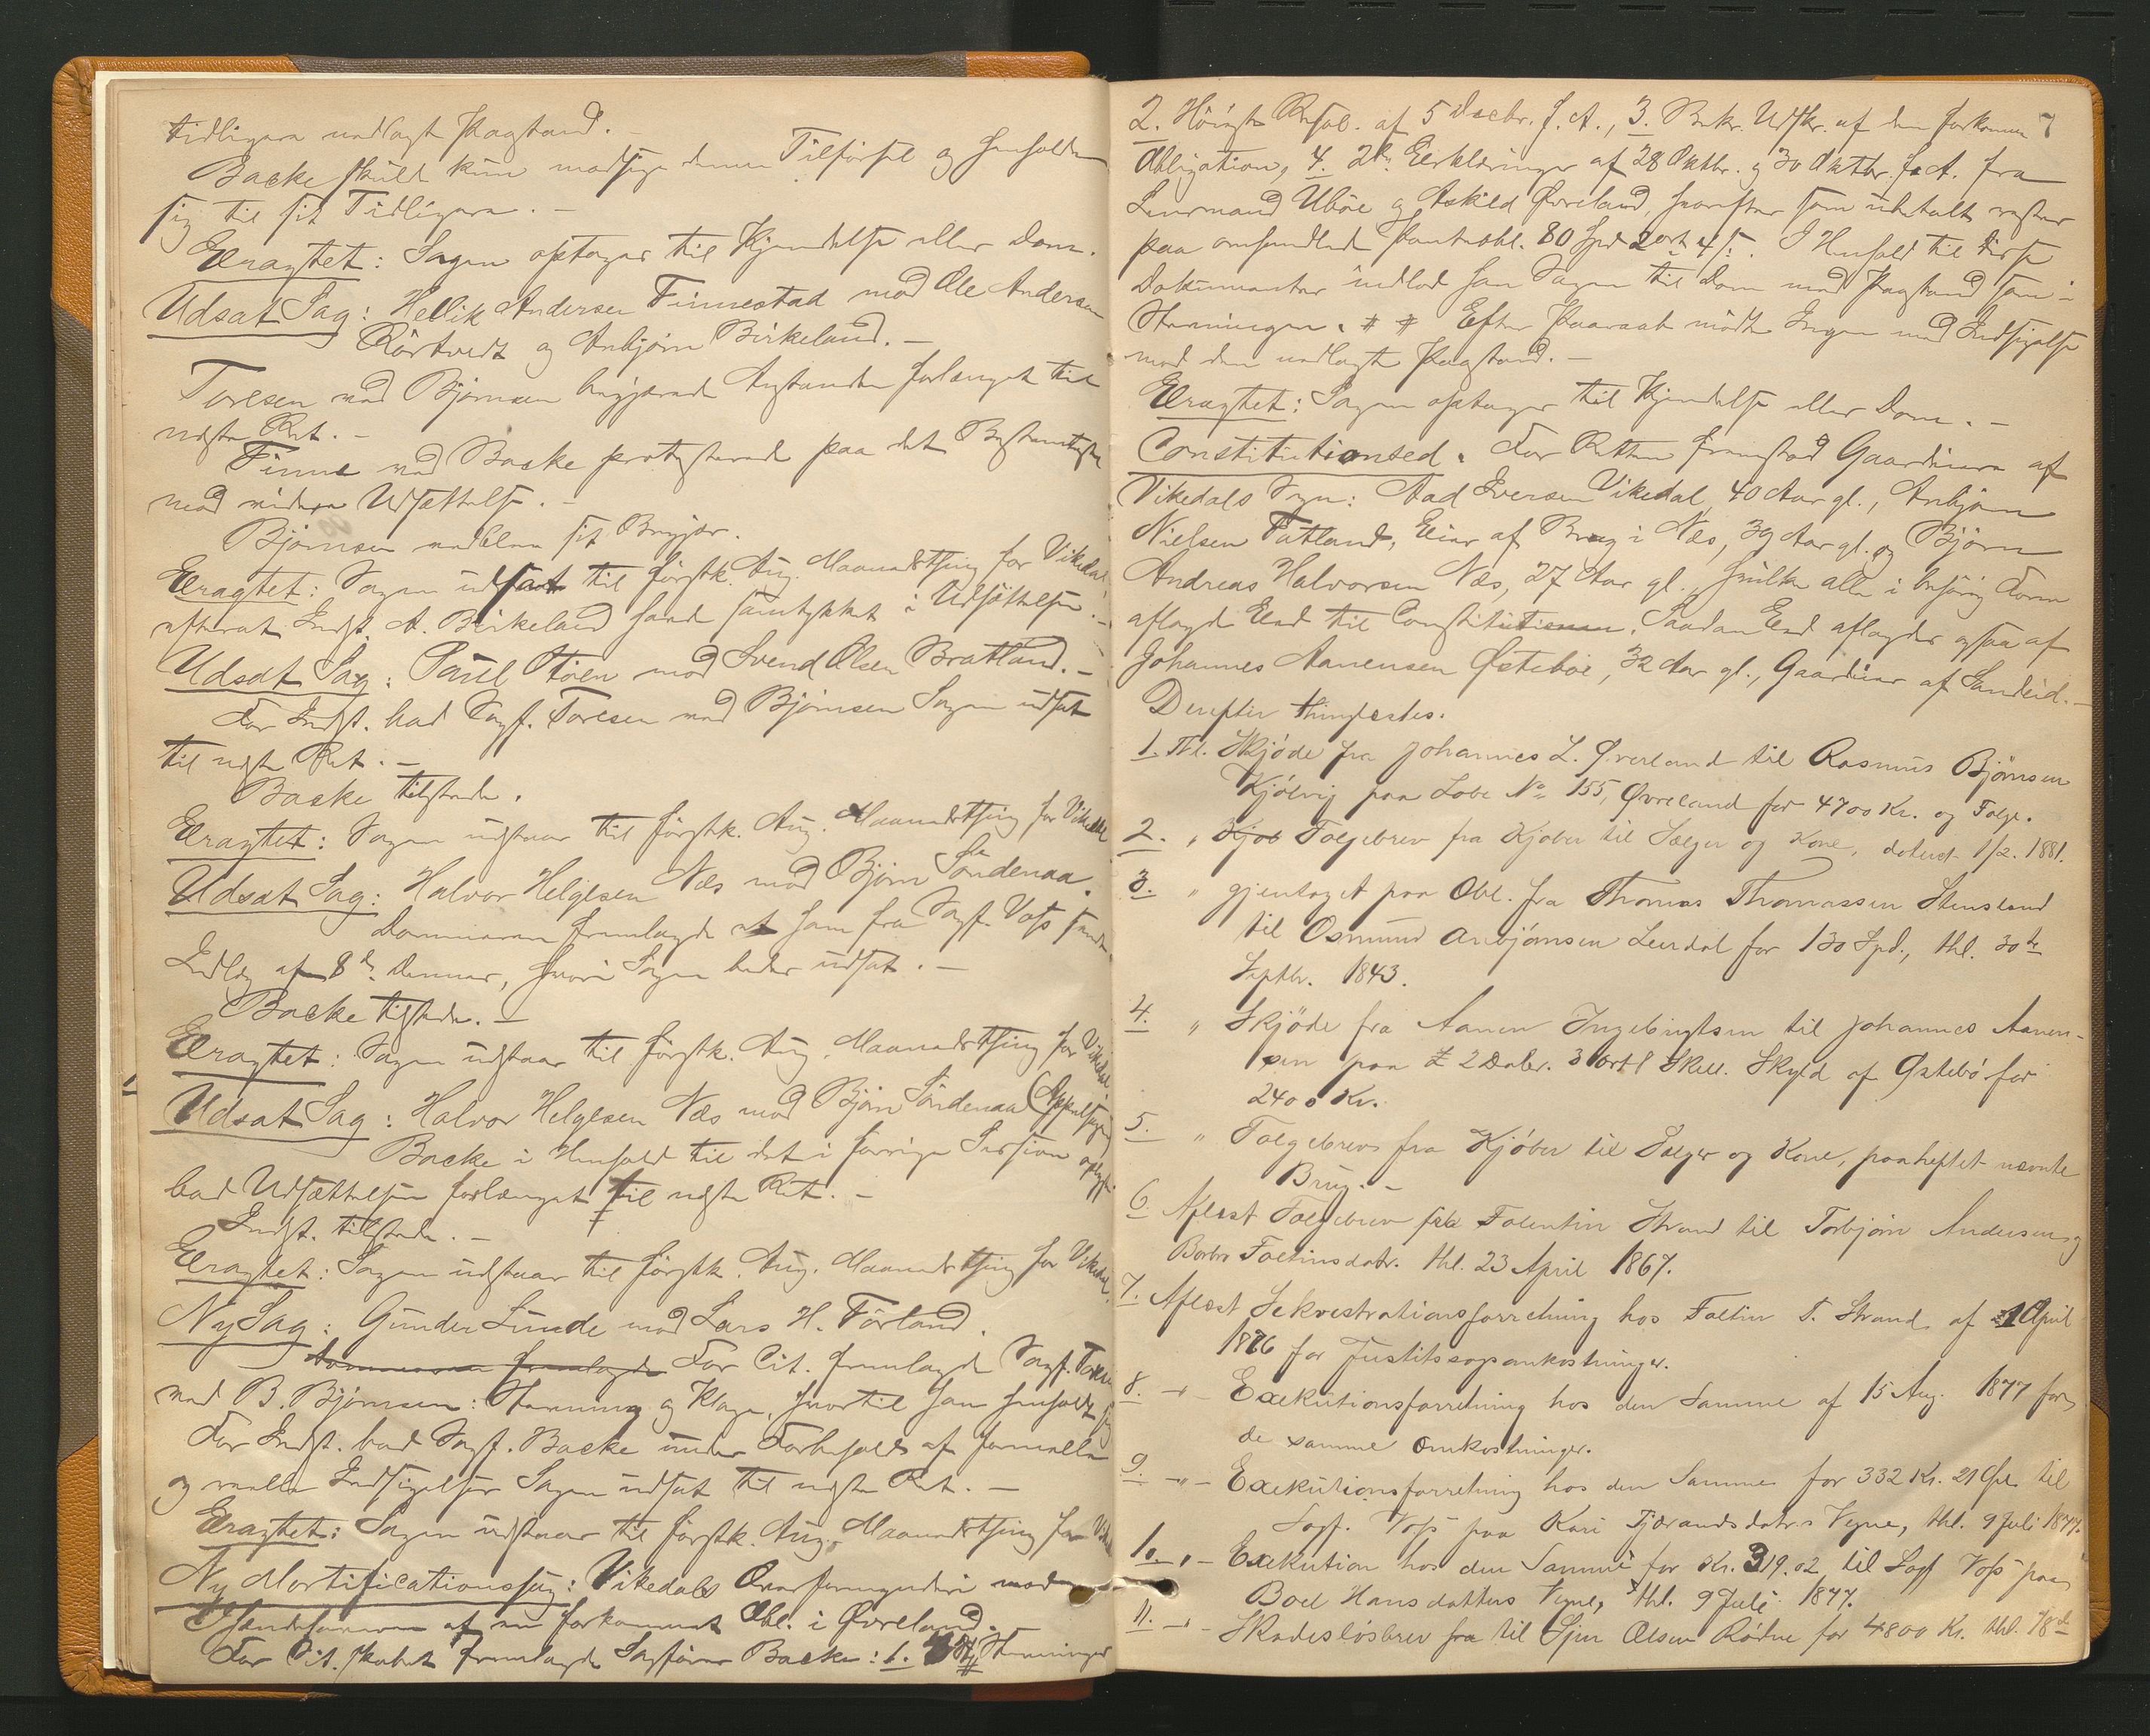 tidligere nedlagt Paastand. –
Backe skulde kun modsige denne Tilførsel og henholdt
sig til sit Tidligere. –
Eragtet: Sagen optages til Kjendelse eller Dom.
Udsat Sag: Hellik Andersen Finnestad mod Ole Andersen
Rörtvedt og Anbjørn Birkeland. –
Toresen ved Björnsen begjærede Anstanden forlænget til
næste Ret. –
Finne ved Backe protesterede paa det Bestemteste
mod videre Udsættelse. –
Bjørnsen nedlagde sit Begjær.
Eragtet: Sagen udsat til førstk. Aug. Maanedsthing for Vikedal
efterat Indst. A. Birkeland havde samtykket i Udsættelsen. –
Udsat Sag: Poul Støen mod Svend Olsen Bratland. –
For Indst. bad Sagf. Toresen ved Bjørnsen Sagen udsat
til næste Ret. –
Backe tilstede.
Eragtet: Sagen udstaar til førstk. Aug. Maanedsthing for Vikedal
Udsat Sag: Halvor Helgesen Næs mod Bjørn Söndenaa.
Dommeren fremlagde et ham fra Sagf. Voss sendt
Indlæg af 8de dennes, hvori Sagen bedes udsat. –
Backe tilstede. –
Eragtet: Sagen udstaar til førstk. Aug. Maanedsthing for Vikedal.
Udsat Sag: Halvor Helgesen Næs mod Bjørn Söndenaa (Appelsag)
Backe i Henhold til det i forrige Session oplyste
bad Udsættelsen forlænget til næste Ret. –
Indst. tilstede. –
Eragtet: Sagen udstaar til førstk. Aug. Maanedsthing for Vikedal.
Ny Sag: Gunder Lunde mod Lars H. Förland.
Dommeren fremlagde For Cit. fremlagde Sagf. Toresen
ved B. Bjørnsen: Stævning og Klage, hvortil han henholdt sig
For Indst. bad Sagf. Backe under Forbehold af formelle
og reelle Indsigelser Sagen udsat til næste Ret. –
Eragtet: Sagen udstaar til førstk. Aug. Maanedsthing for Vikedal
Ny Mortificationssag: Vikedals Overformynderi mod
Ihændehaveren af en forkommet Obl. i Øvreland.
For Cit. Skabet fremlagde Sagfører Backe: 1. Stævninger
7
2. Høiest Resol. af 5 Decbr. f. A., 3. Bekr. Udskr. af den forkomne
Obligation, 4. 2de Erklæringer af 28 Oktbr. og 30 Oktbr. f. A. fra
Lensmand Ubøe og Askild Øvreland, hvorefter som ubetalt rester
paa omhandlede Panteobl. 80 Spd 2 ort 4 s. I Henhold til disse
Dokumenter indlod han Sagen til Dom med Paastand som i
Stævningen. # # Efter Paaraab mødte Ingen med Indsigelse
mod den nedlagte Paastand. –
Eragtet: Sagen optages til Kjendelse eller Dom. –
Constitutionsed. For Retten fremstod Gaardeiere af
Vikedals Sogn: Aad Iversen Vikedal, 40 Aar gl., Anbjørn
Nielsen Tatland, Eier af Brug i Næs, 39 Aar gl. og Bjørn
Andreas Halvorsen Næs, 27 Aar gl., hvilke alle i behørig Form
aflagde Eed til Constitutionen. Saadan Eed aflagdes ogsaa af
Johannes Aanensen Østebøe, 32 Aar gl., Gaardeier af Sandeid. –
Derefter thinglæstes.
1. Thl. Skjøde fra Johannes L. Øvreland til Rasmus Bjørnsen
Kjölvig paa Løbe No 155, Øvreland for 4700 Kr. og Følge.
2. " Kjøb Følgebrev fra Kjøber til Sælger og Kone, dateret 1/2. 1881.
3. " gjentaget paa Obl. fra Thomas Thomassen Stensland
til Osmund Anbjørnsen Leirdal for 130 Spd., thl. 30te
Septbr. 1843.
4. " Skjöde fra Aanen Ingebrigtsen til Johannes Aanen-
sen paa 2 Daler. 3 Ort 1 Skill. Skyld af Østebö for
2400 Kr.
5. " Følgebrev fra Kjöber til Sælger og Kone, paaheftet nævnte
Brug. –
6. Aflæst Følgebrev fra Folentin Strand til Torbjørn Andersen og
Borbro Foltinsdatr. thl. 23 April 1867.
7. Aflæst Sekvestrationsforretning hos Foltin T. Strand af 1 April
1876 for Justitssagsomkostninger.
8. –"– Exekutionsforretning hos den Samme af 15 Aug. 1877 for
de samme Omkostninger.
9. –"– Exekutionsforretning hos den Samme for 332 Kr. 21 Øre til
Sagf. Voss paa Kari Tjærandsdatrs Vegne, thl. 9 Juli 1877.
10. " – Exekution hos den Samme for Kr. 319.02 til Sagf Voss paa
Boel Hansdatters Vegne, thl. 9 Juli 1877.
11. –"– Skadesløsbrev fra til Sjur Olsen Rödne for 4800 Kr. thl. 18de